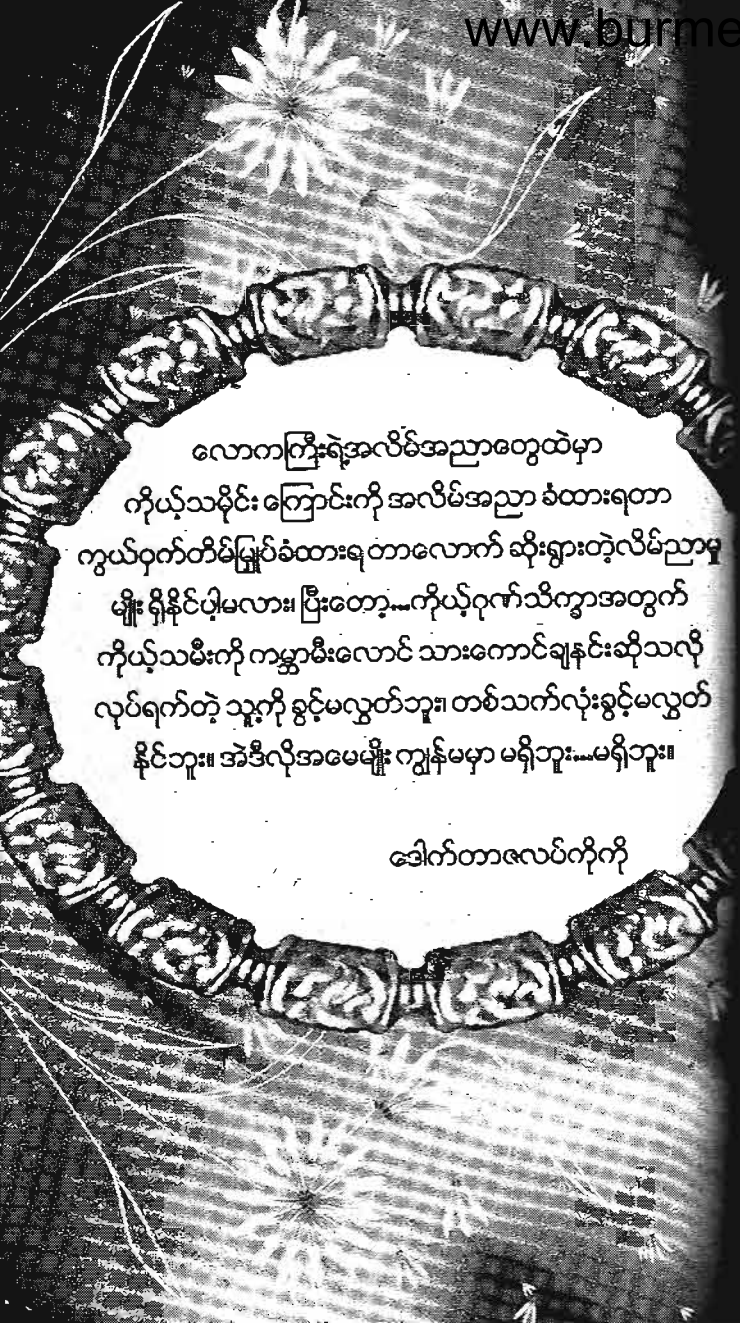 www.burme
လောကကြီးရဲ့အလိမ်အညာတွေထဲမှာ
ကိုယ့်သမိုင်းကြောင်းကို အလိမ်အညာ ခံထားရတာ
ကွယ်ဝှက်တိမ်မြှုပ်ခံထားရတာလောက် ဆိုးရွားတဲ့လိမ်ညာမှု
မျိုး ရှိနိုင်ပါ့မလား၊ ပြီးတော့...ကိုယ့်ဂုဏ်သိက္ခာအတွက်
ကိုယ့်သမီးကို ကမ္ဘာမီးလောင် သားကောင်ချနင်းဆိုသလို
လုပ်ရက်တဲ့ သူ့ကို ခွင့်မလွှတ်ဘူး၊ တစ်သက်လုံးခွင့်မလွှတ်
နိုင်ဘူး။ အဲဒီလိုအမေမျိုး ကျွန်မမှာ မရှိဘူး...မရှိဘူး။
ဒေါက်တာဇလပ်ကိုကို